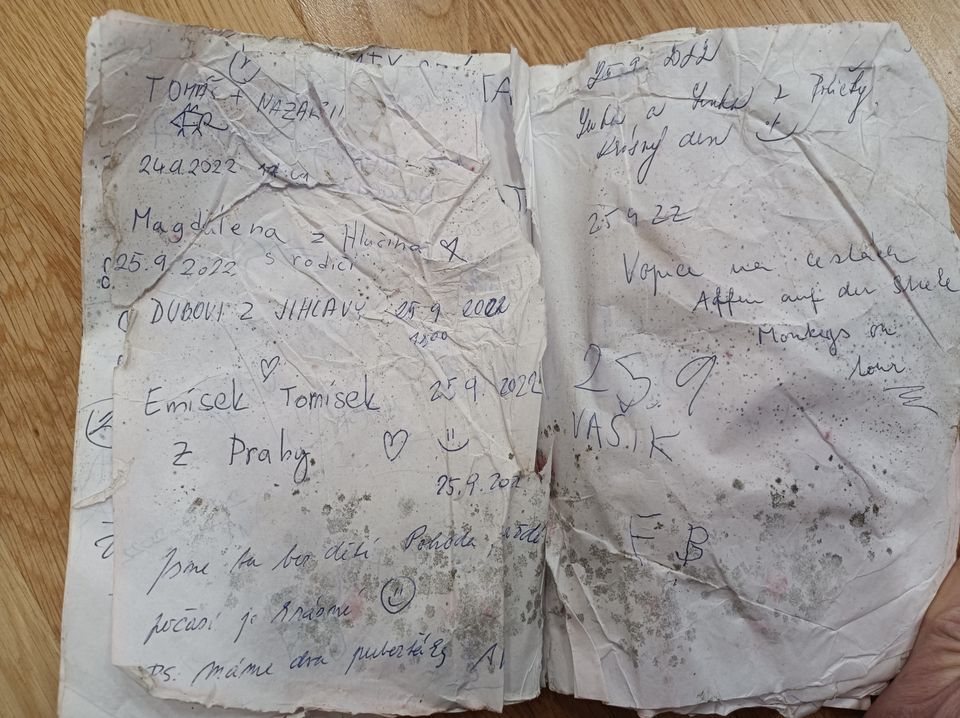 TOMÁŠ + NAZARIJ
24.9.2022
Magdaléna z Hlučína
25.9.2022 s rodiči
DUBOVI Z JIHLAVY 25 9 2022
Emísek Tomísek 25 9 2022
z Prahy
25.9.202
Jsme tu bez dětí Pohoda,
počasí je krásné
PS. máme dva puberťáky
25.9 2022
a Lenka z
krásný den
25 9 22
Vopice na cestách
Affen auf der
Monkeys on
tour
25.9
VAŠÍK
F B